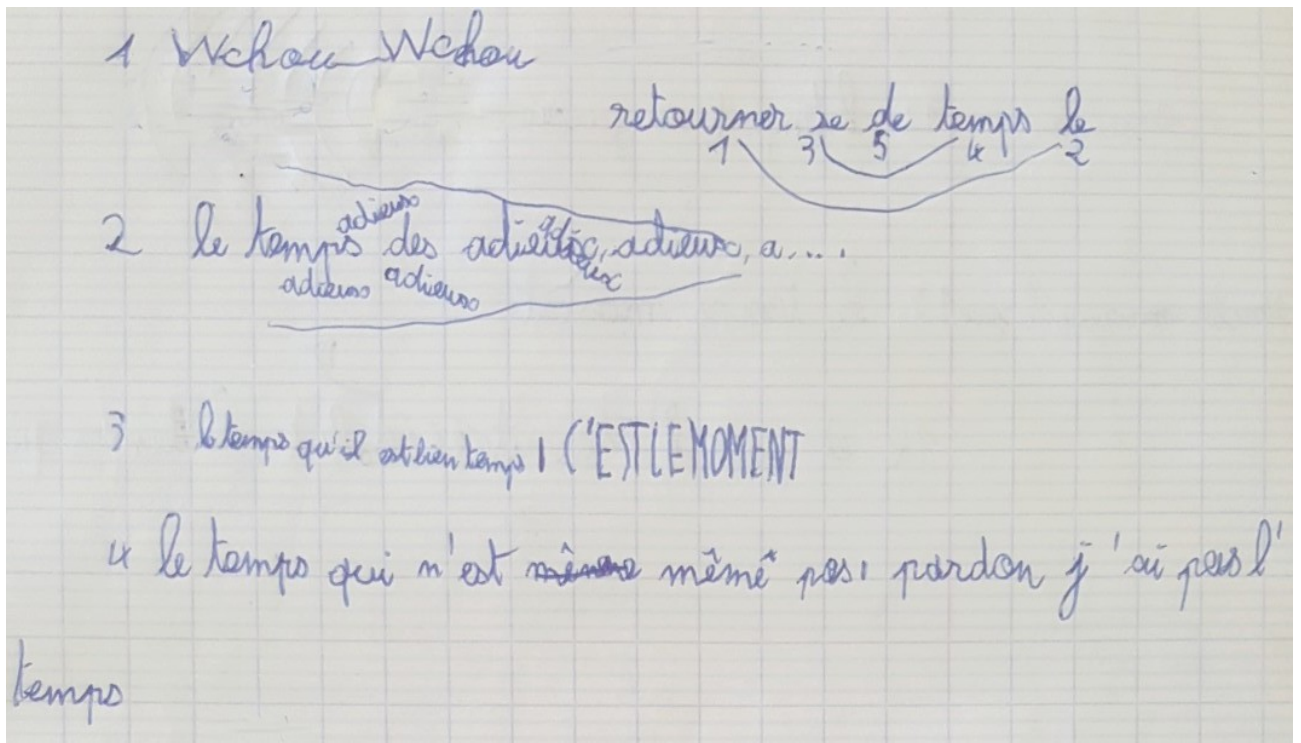 1 Wchou Wchou
retourner se de temps le
1 3 5 4 2
adieux
2 le temps des adieux, adieux, a....
adieux adieux adieux
3 l temps qu'il est bien temps, C'EST LE MOMENT
4 le temps qui n'est même pas, pardon j'ai pas l'
temps